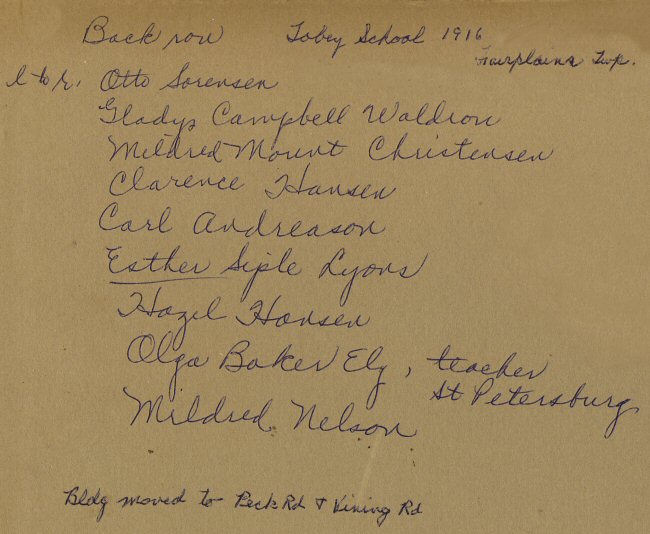 Back row Tobey School 1916
Fairplains Twp.
l to r. Otto Sorensen
Gladys Campbell Waldron
Mildred Mount Christensen
Clarence Hansen
Carl Andreason
Esther Siple Lyons
Hazel Hansen
Olga Baker Ely, teacher
St Petersburg
Mildred Nelson
Bldg moved to Peck Rd & Vining Rd